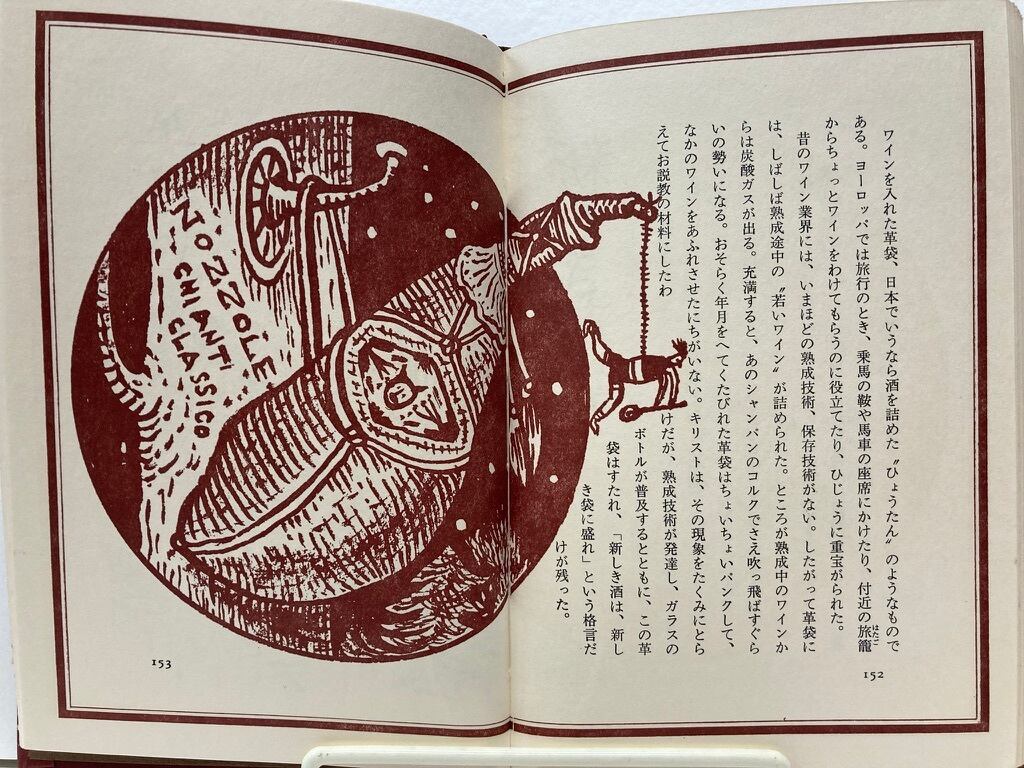 ワインを入れた革袋、日本でいうなら酒を詰めた〝ひょうたん〟のようなもので
ある。ヨーロッパでは旅行のとき、乗馬の鞍や馬車の座席にかけたり、付近の旅籠
はたご
からちょっとワインをわけてもらうのに役立てたり、ひじょうに重宝がられた。
昔のワイン業界には、いまほどの熟成技術、保存技術がない。したがって革袋に
は、しばしば熟成途中の〝若いワイン〟が詰められた。ところが熟成中のワインか
らは炭酸ガスが出る。充満すると、あのシャンパンのコルクでさえ吹っ飛ばすぐら
いの勢いになる。おそらく年月をへてくたびれた革袋はちょいちょいパンクして、
なかのワインをあふれさせたにちがいない。キリストは、その現象をたくみにとら
えてお説教の材料にしたわ
けだが、熟成技術が発達し、ガラスの
ボトルが普及するとともに、この革
袋はすたれ、「新しき酒は、新し
き袋に盛れ」という格言だ
けが残った。
152
NOZZOLE
CHIANTI
CLASSICO
153